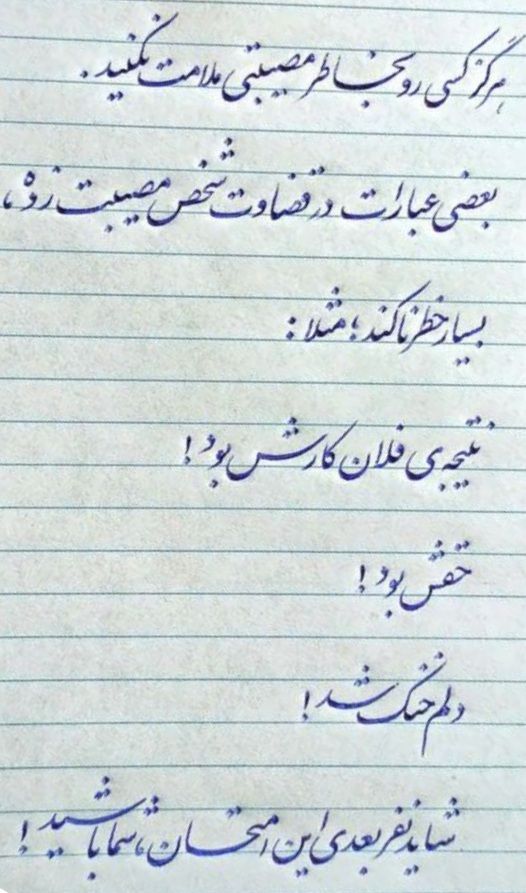 هرگز کسی رو بخاطر مصیبتی ملامت نکنید.
بعضی عبارات در قضاوت شخص مصیبت زده،
بسیار خطرناکند؛ مثلا:
نتیجه‌ی فلان کارش بود!
حقش بود!
دلم خنک شد!
شاید نفر بعدی این امتحان، شما باشید!